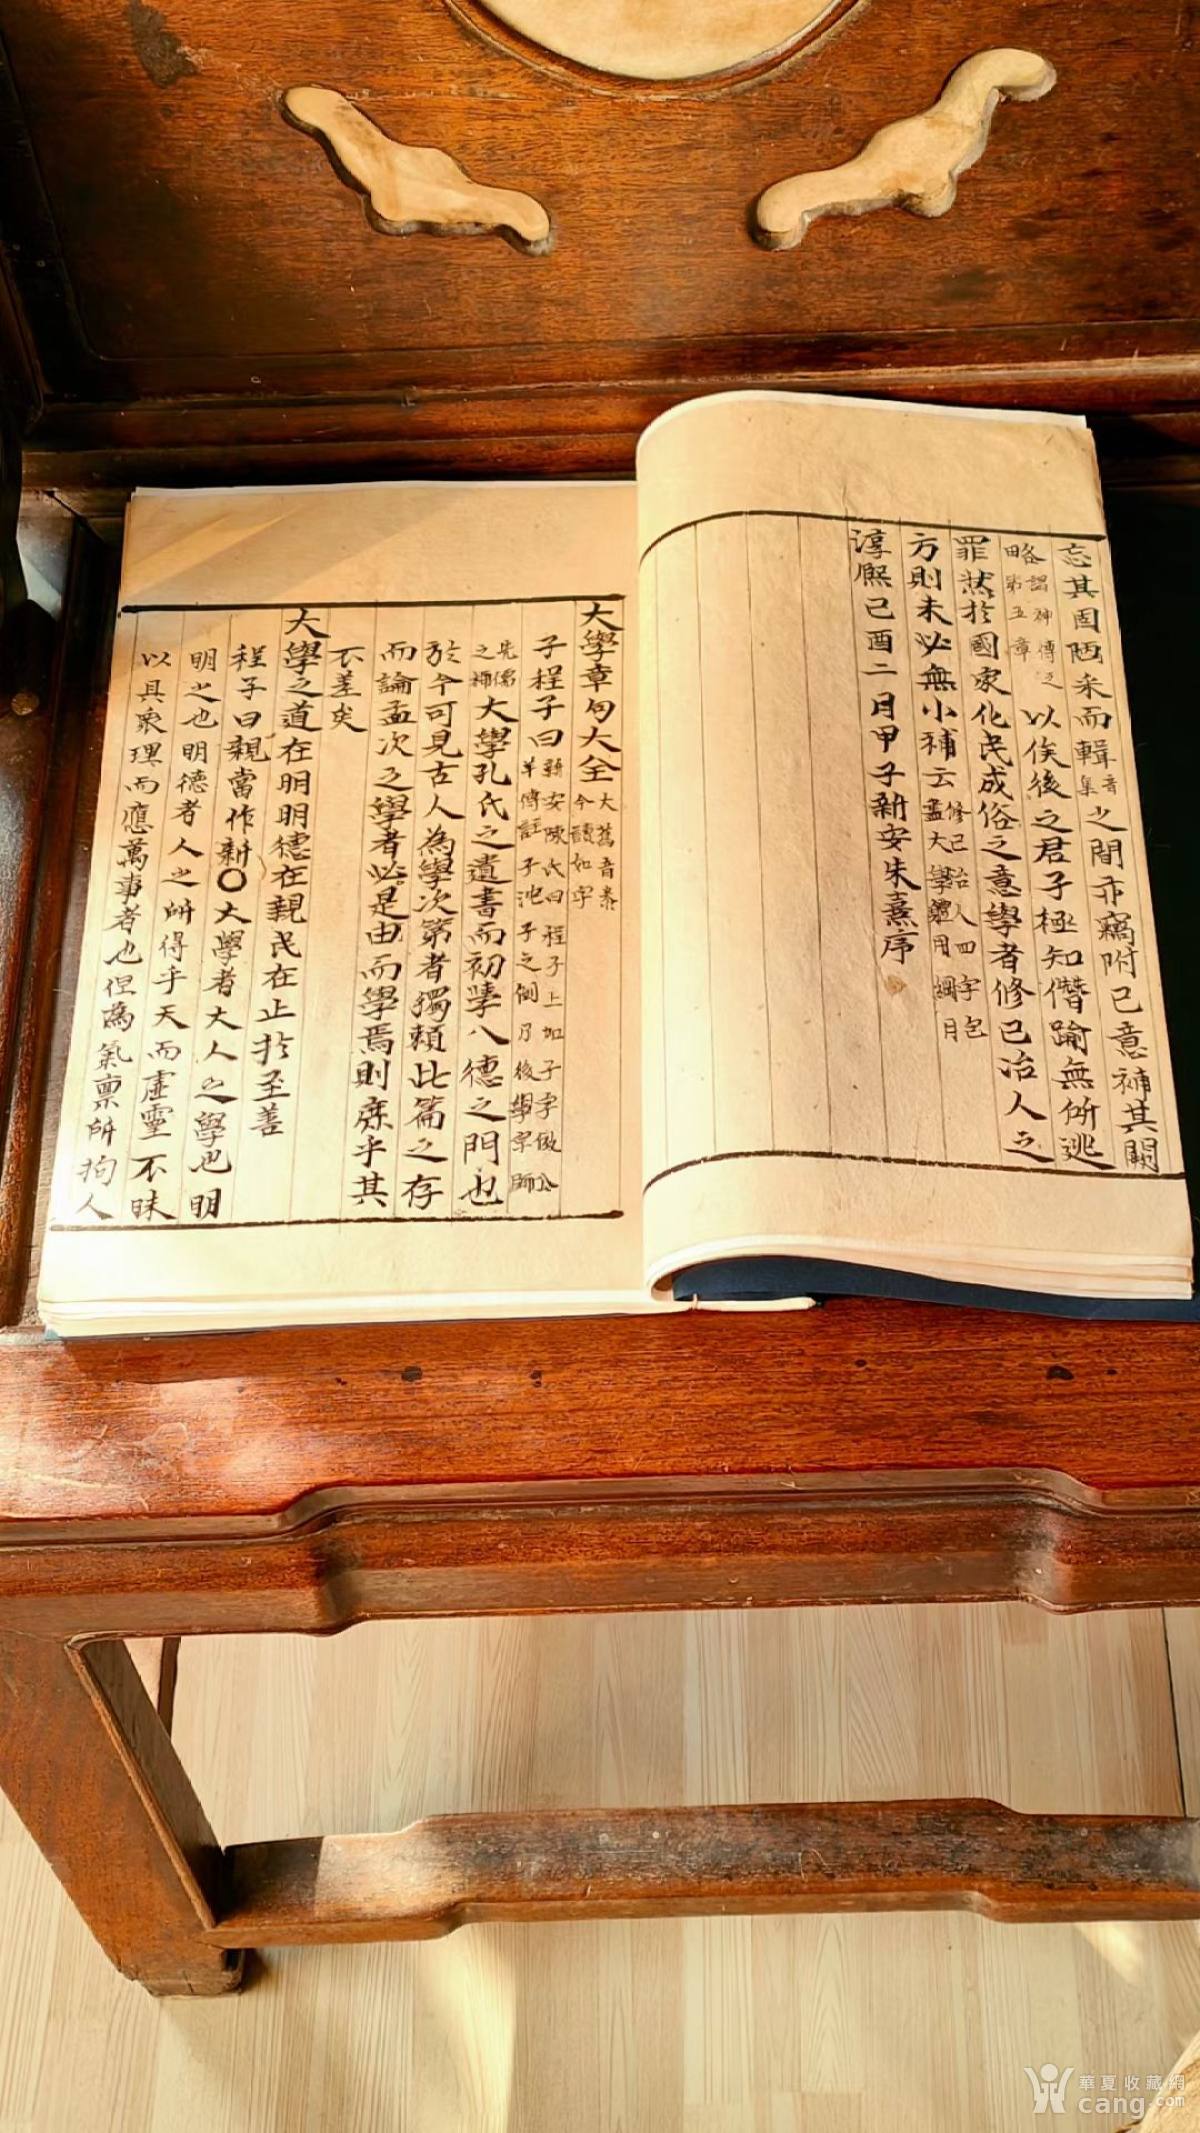 忘其固陋采而輯音集之間亦竊附己意補其闕
略謂補傳之第五章以俟後之君子極知僭踰無所逃
罪然於國家化民成俗之意學者修己治人之
方則未必無小補云修己治人四字包盡大學體用綱目
淳熙己酉二月甲子新安朱熹序
大學章句大全大舊音泰今讀如字
子程子曰新安陳氏曰程子上加子字倣公羊傳註子沈子之例乃後學宗師
先儒之稱大學孔氏之遺書而初學入德之門也
於今可見古人為學次第者獨賴此篇之存
而論孟次之學者必是由而學焉則庶乎其
不差矣
大學之道在明明德在親民在止於至善
程子曰親當作新〇大學者大人之學也明
明之也明德者人之所得乎天而虛靈不昧
以具衆理而應萬事者也但為氣稟所拘人
華夏收藏網
cang.com